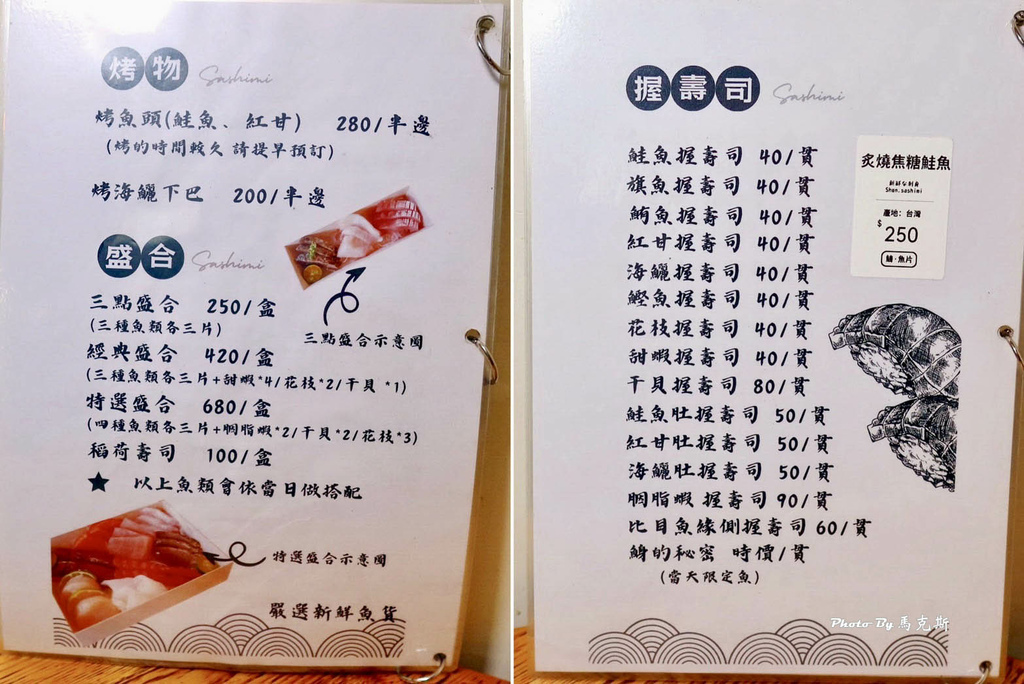 烤物 Sashimi
烤魚頭(鮭魚、紅甘) 280/半邊
(烤的時間較久 請提早預訂)
烤海鱺下巴 200/半邊
盛合 Sashimi
三點盛合 250/盒
(三種魚類各三片)
三點盛合示意圖
經典盛合 420/盒
(三種魚類各三片+甜蝦*4/花枝*2/干貝 *1)
特選盛合 680/盒
(四種魚類各三片+胭脂蝦*2/干貝*2/花枝*3)
稻荷壽司 100/盒
★ 以上魚類會依當日做搭配
特選盛合示意圖
嚴選新鮮魚貨
握壽司 Sashimi
鮭魚握壽司 40/貫
旗魚握壽司 40/貫
鮪魚握壽司 40/貫
紅甘握壽司 40/貫
海鱺握壽司 40/貫
鰹魚握壽司 40/貫
花枝握壽司 40/貫
甜蝦握壽司 40/貫
干貝握壽司 80/貫
鮭魚肚握壽司 50/貫
紅甘肚握壽司 50/貫
海鱺肚握壽司 50/貫
胭脂蝦 握壽司 90/貫
比目魚緣側握壽司 60/貫
鯓的秘密 時價/貫
(當天限定魚)
炙燒焦糖鮭魚
Shen.sashimi
產地: 台灣
$250
Photo By 馬克斯